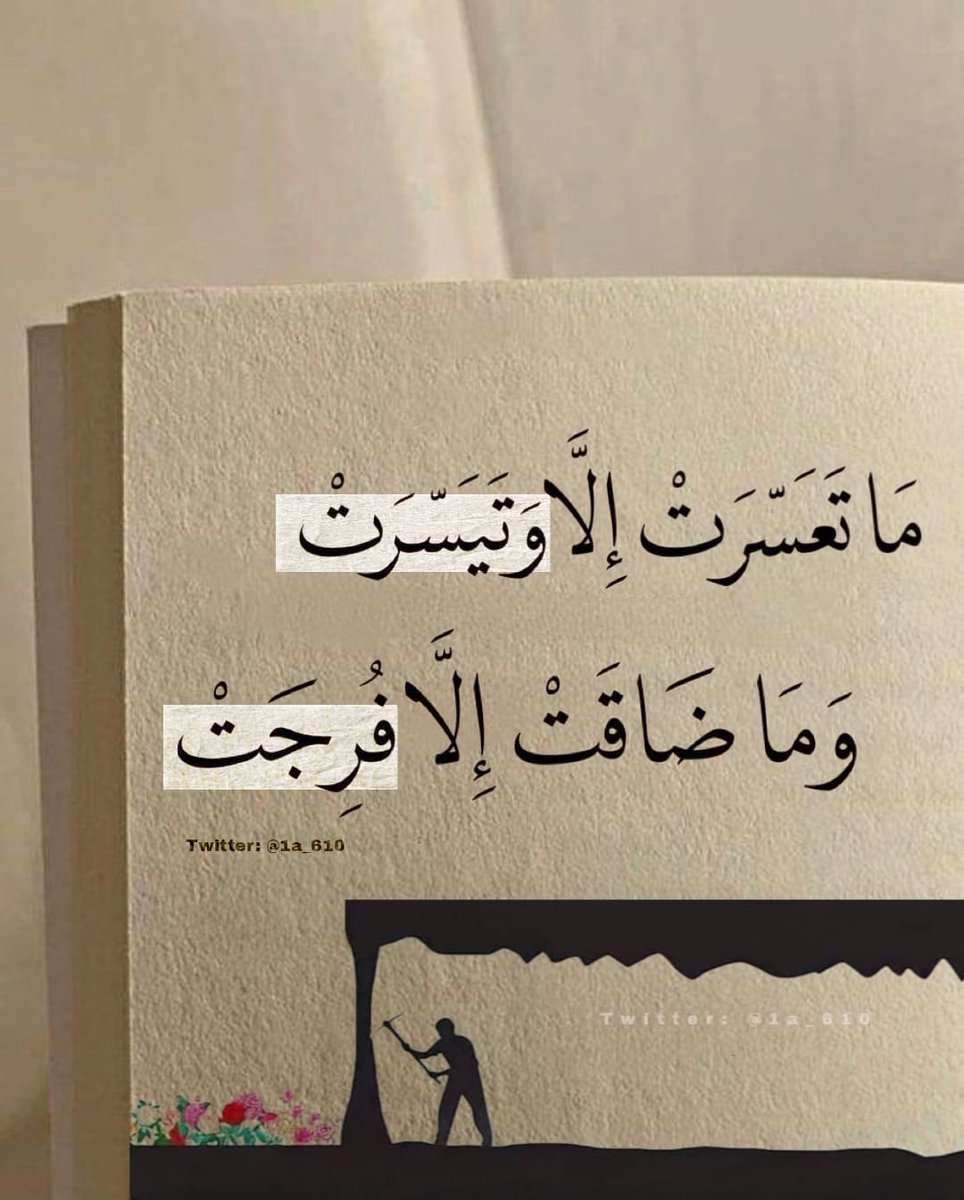 مَا تَعَسَّرَتْ إِلَّا وَتَيَسَّرَتْ
وَمَا ضَاقَتْ إِلَّا فُرِجَتْ
Twitter: @1a_610
Twitter: @1a_610